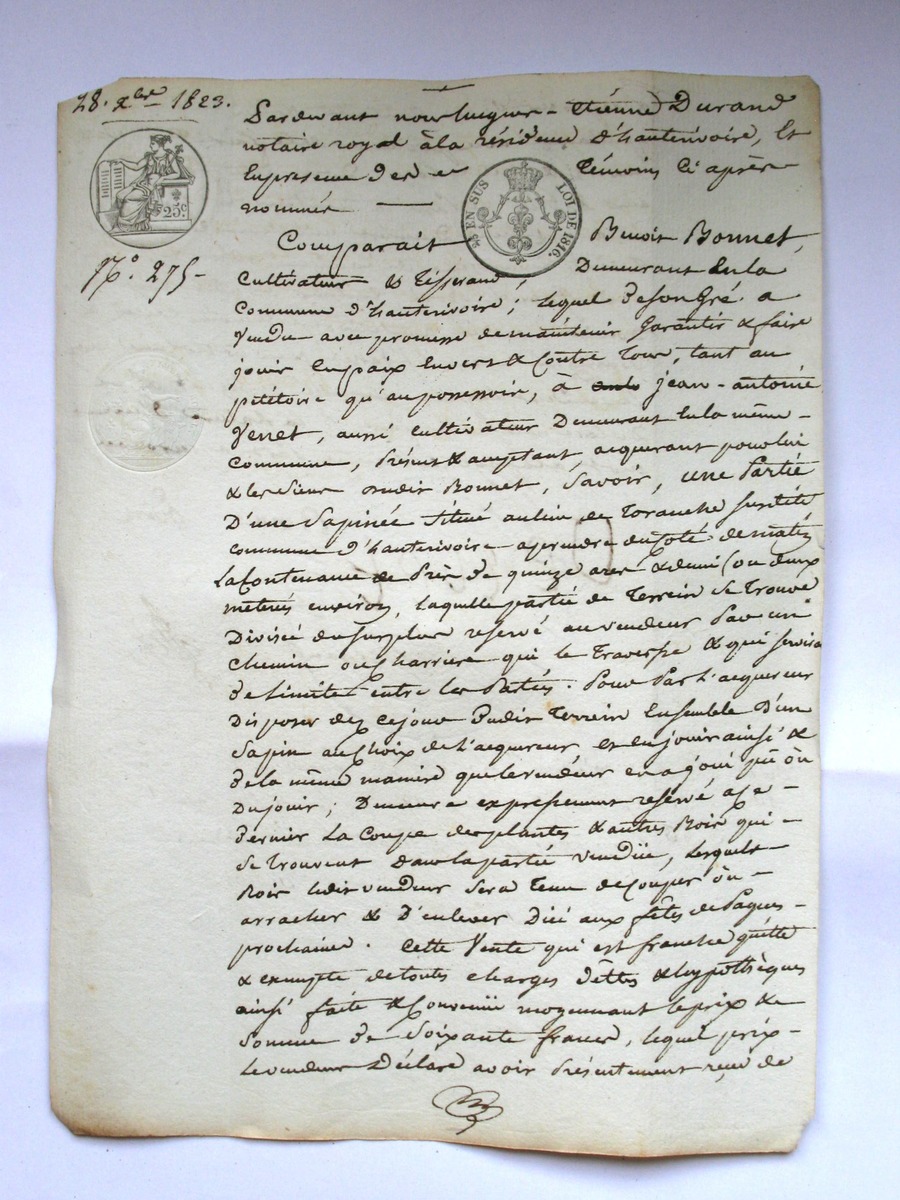 28. Xbre 1823.
Pardevant nous hugues - Etienne Durand
notaire royal à la résidence d'hauterivoire, Et
En presence des Témoins Ci après
nommés
25c.
EN SUS LOI DE 1816.
N.o 275-
Comparait Benoit Bonnet,
Cultivateur & Tisserand, Demeurant En la
Commune d'hauterivoire; lequel de son Gré a
Vendu avec promesse de maintenir Garantir & faire
jouir En paix Envers & Contre Tous, tant au
pétitoire qu'au possessoire, à jean-antoine
Verret, aussi Cultivateur Demeurant En la même-
Commune, présent & acceptant, acquerant pour lui
& les siens dudit Bonnet, Savoir, une Partié
D'une Sapinée située au lieu de Toranche susdité
Commune d'hauterivoire aprendre du Coté de matin
La Contenance de Près de quinze ares & demi (ou deux
metérés environ, laquelle partié de Terrein se Trouve
Divisée du Surplus reservé au vendeur Par un
Chemin ou Charriere qui le Traverse & qui servira
de Limites entre les Partiés. Pour Par L'acquereur
Disposer dez Cejour Dudit Terrein Ensemble D'un
Sapin au Choix de L'acquereur et En jouir ainsi &
de la même maniere que le vendeur en a joui pû ou
Du jouir; Demeure expressement reservé a ce-
Dernier La Coupe des plantes & autres Bois qui -
se Trouvent Dans la partié vendüe, Lesquels-
Bois ledit vendeur Sera Tenu de Couper ou-
arracher & D'enlever D'ici aux fêtes de Paques-
prochaine. Cette Vente qui est franche quitte
& exempte de toutes charges Dèttes & hypothèques
ainsi faite & Convenüe moyennant le prix &
Somme de Soixante francs, lequel prix-
Le vendeur Déclare avoir Présentement reçu de